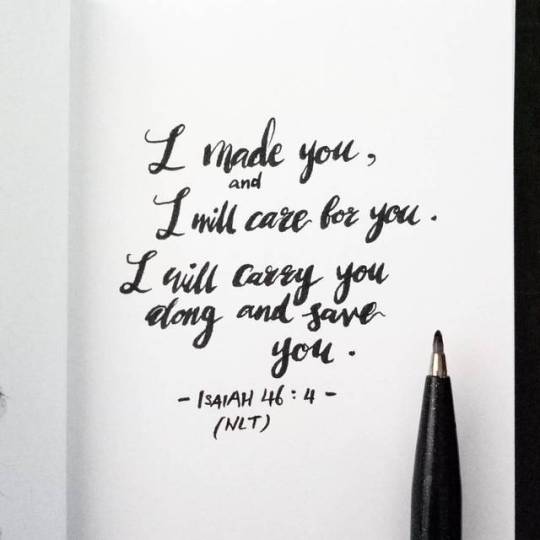 I made you,
and
I will care for you.
I will carry you
along and save
you.
- ISAIAH 46:4 -
(NLT)